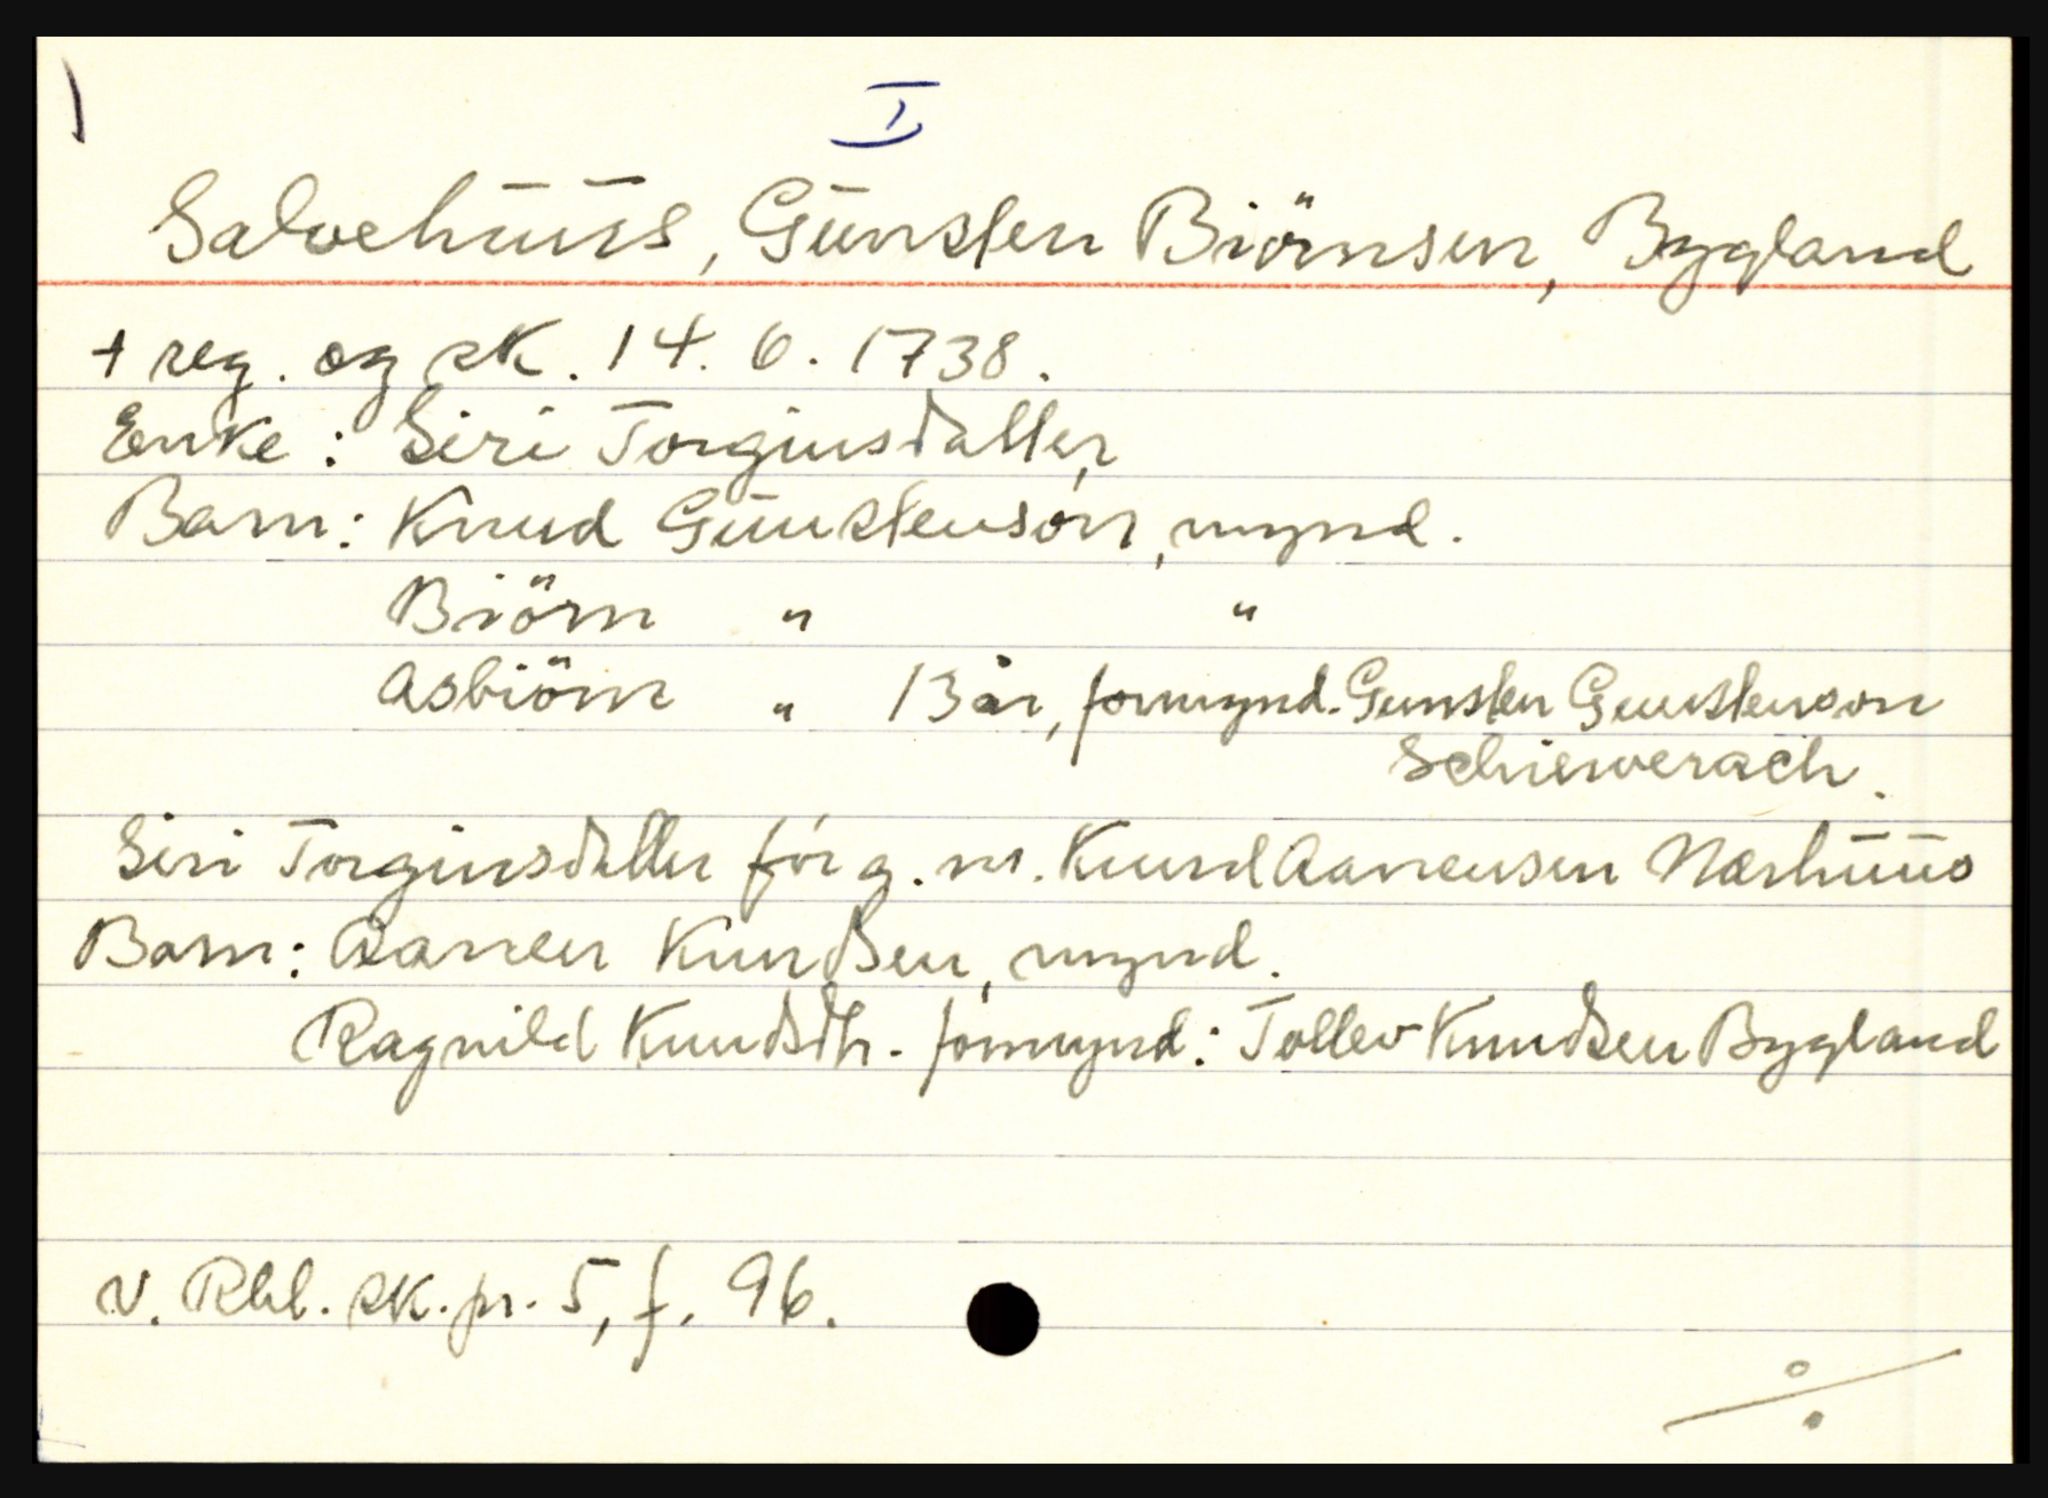 I
Salvehuus, Gunsten Biörnsen, Bygland
+ reg. og sk. 14. 6. 1738.
Enke: Siri Torgiusdatter,
Barn: Knud Gunstenson, mynd.
Biörn " "
Asbiörn " 13 år, formynd. Gunsten Gunstenson
Schiewerach.
Siri Torgiusdatter för g. m. Knud Aanensen Næshuus
Barn: Aanen Knudsen, mynd.
Ragnild Knudsdtr. formynd: Tollev Knudsen Bygland
v. Rbl. sk. pr. 5, f. 96.